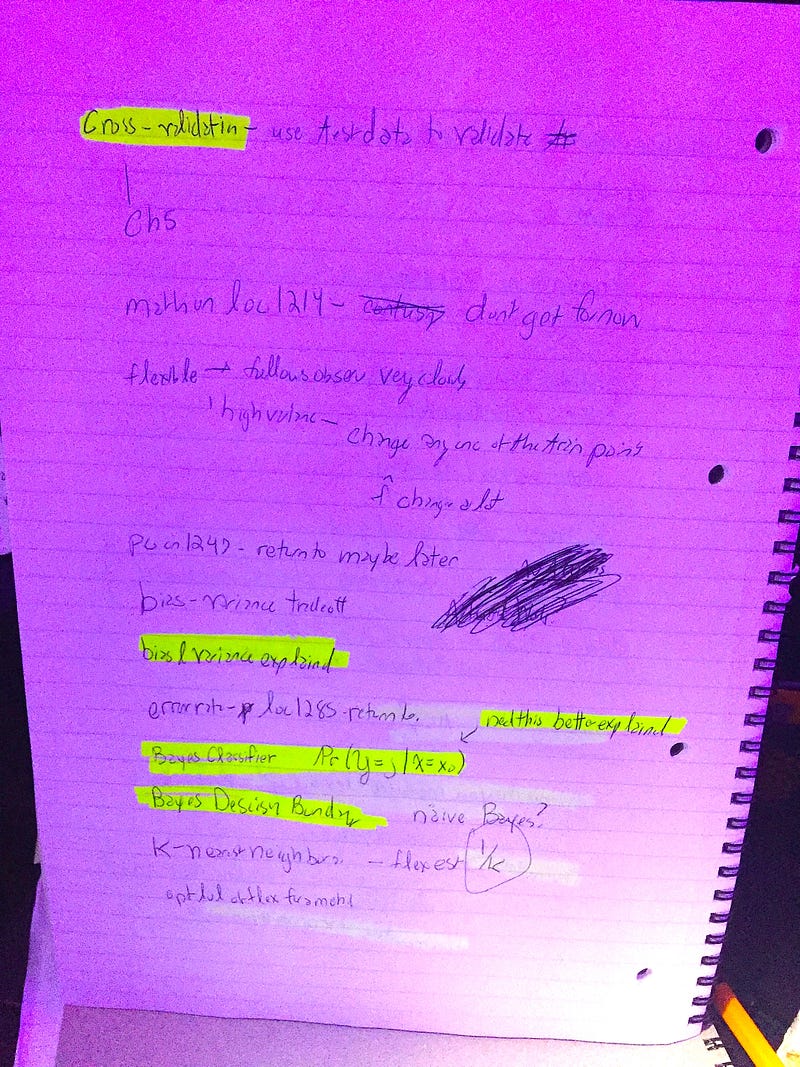 Cross-validatin - use test data to validate
Ch5
math on loc 1214 - dont get for now
flexible → follows obser very closly
high varianc -
change any one of the train points
f̂ change a lot
1247 - return to maybe later
bias-variance tradeoff
bias & variance explaind
error rate - loc 1285 - return to.
need this better explaind
Bayes Classifier Pr(Y=j|X=x₀)
Bayes Descisn Bundry naive Bayes?
K-nearst neighbors - flex est 1/K